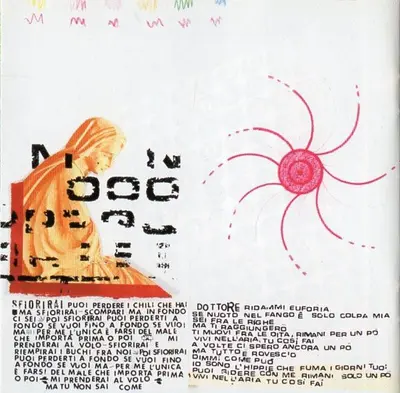 SFIORIRAI PUOI PERDERE I CHILI CHE HAI
MA SFIORIRAI-SCOMPARI MA IN FONDO
CI SEI POI SFIORIRAI PUOI PERDERTI A
FONDO SE VUOI FINO A FONDO SE VUOI
MA PER ME L'UNICA È FARSI DEL MALE
CHE IMPORTA PRIMA O POI MI
PRENDERAI AL VOLO-SFIORIRAI E
RIEMPIRAI I BUCHI FRA NOI POI SFIORIRAI
PUOI PERDERTI A FONDO SE VUOI FINO
A FONDO SE VUOI MA-PER ME L'UNICA
È FARSI DEL MALE CHE IMPORTA PRIMA
O POI MI PRENDERAI AL VOLO
MA TU NON SAI COME
DOTTORE RIDAMMI EUFORIA
SE NUOTO NEL FANGO È SOLO COLPA MIA
SEI FRA LE RIGHE
MA TI RAGGIUNGERÒ
TI MUOVI FRA LE DITA, RIMANI PER UN PÒ
VIVI NELL'ARIA, TU COSÌ FAI
A VOLTE CI SPERO ANCORA UN PÒ
MA TUTTO È ROVESCIO
DIMMI COME PUOI
IO SONO L'HIPPIE CHE FUMA I GIORNI TUOI
PUOI RIDERE CON ME RIMANI SOLO UN PÒ
VIVI NELL'ARIA TU COSÌ FAI